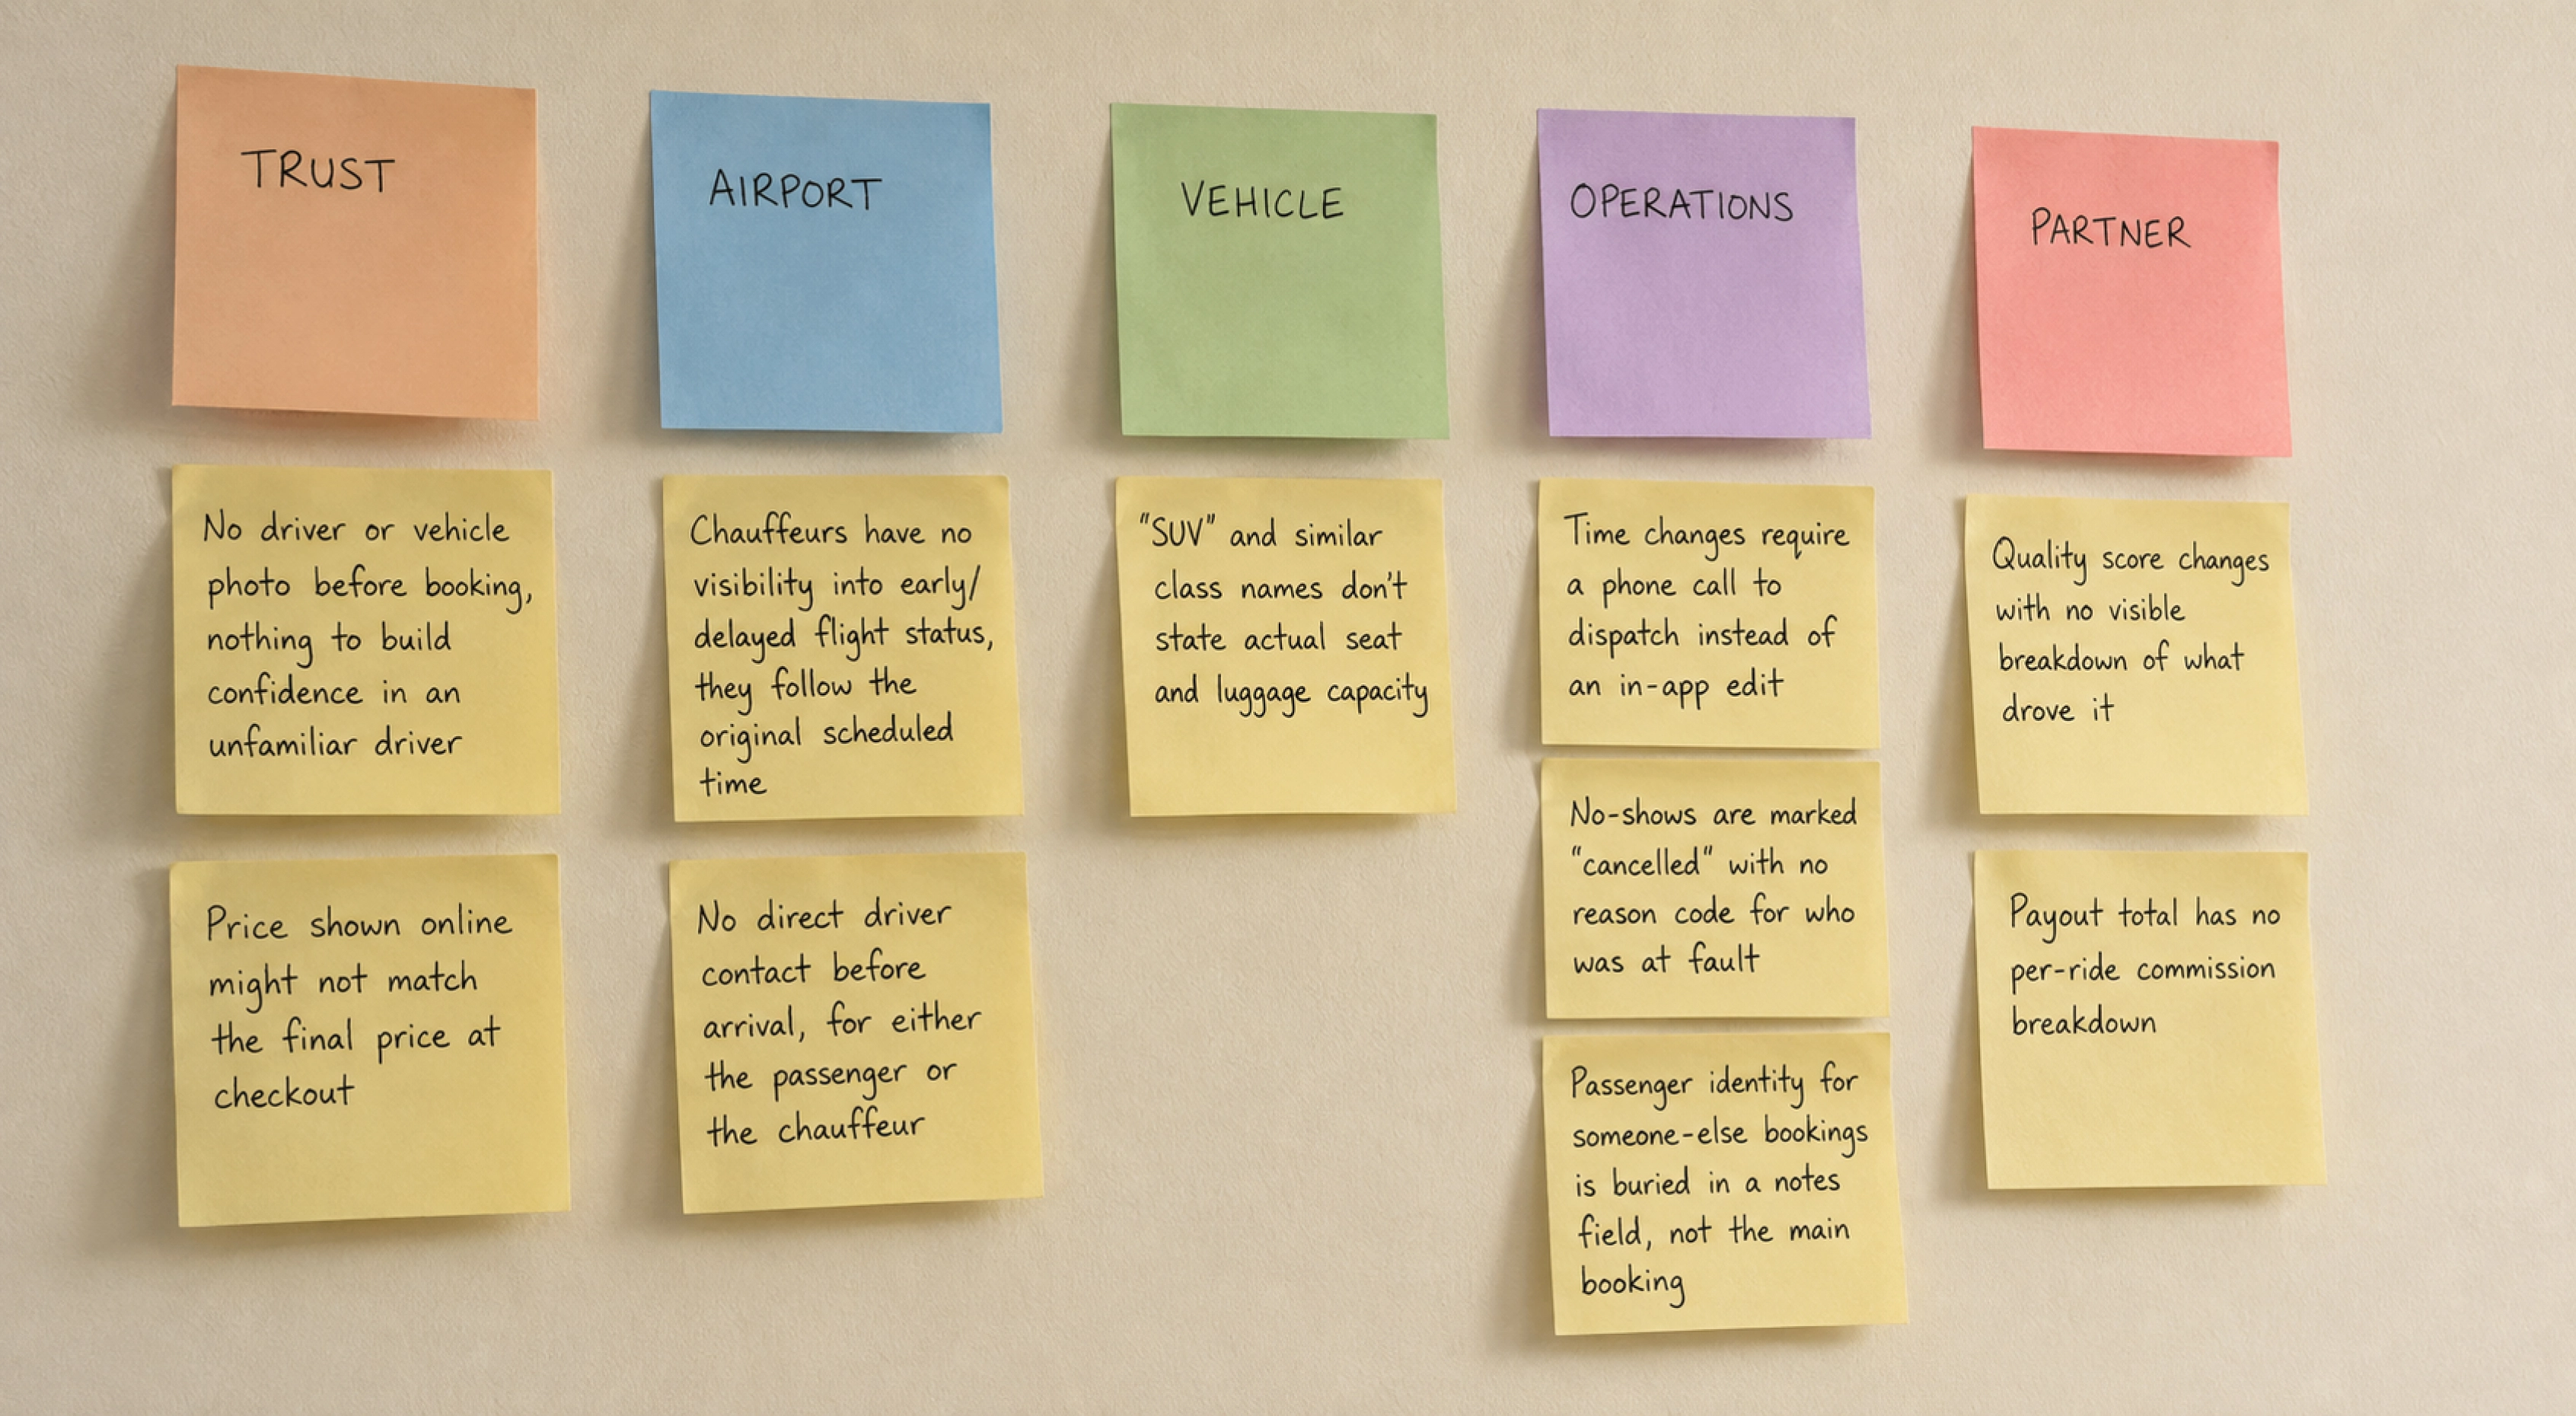 TRUST
No driver or vehicle
photo before booking,
nothing to build
confidence in an
unfamiliar driver
Price shown online
might not match
the final price at
checkout
AIRPORT
Chauffeurs have no
visibility into early/
delayed flight status,
they follow the
original scheduled
time
No direct driver
contact before
arrival, for either
the passenger or
the chauffeur
VEHICLE
"SUV" and similar
class names don't
state actual seat
and luggage capacity
OPERATIONS
Time changes require
a phone call to
dispatch instead of
an in-app edit
No-shows are marked
"cancelled" with no
reason code for who
was at fault
Passenger identity for
someone-else bookings
is buried in a notes
field, not the main
booking
PARTNER
Quality score changes
with no visible
breakdown of what
drove it
Payout total has no
per-ride commission
breakdown